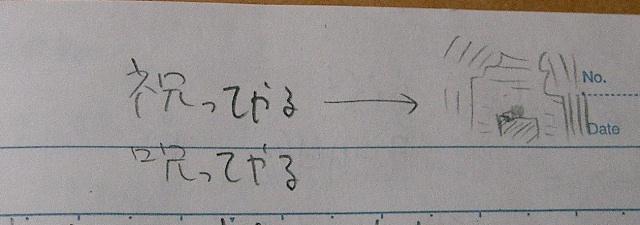 祝ってやる → No.
Date
呪ってやる